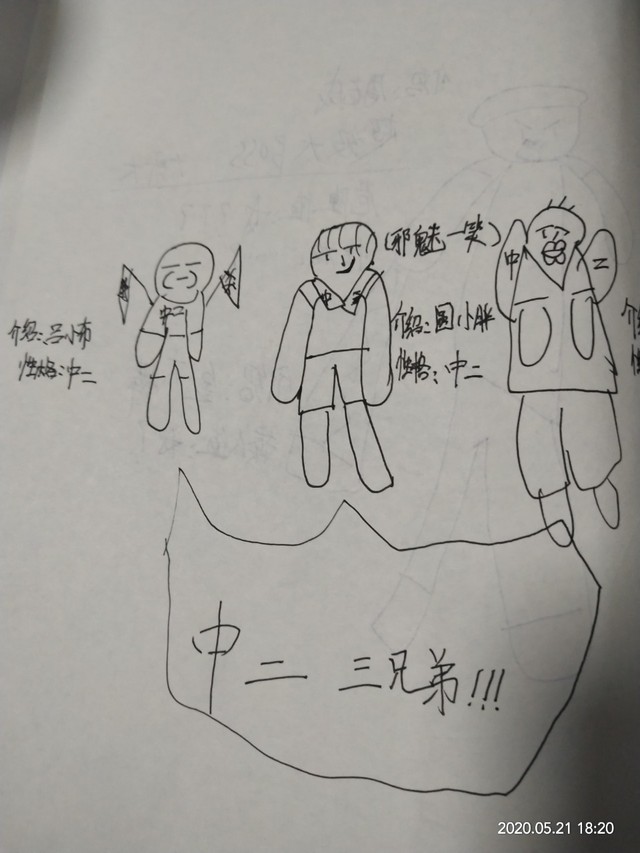 介绍：吕小布
性格：中二
中二
(邪魅一笑)
中二
介绍：圆小胖
性格：中二
中二
介
性
中二 三兄弟!!!
2020.05.21 18:20